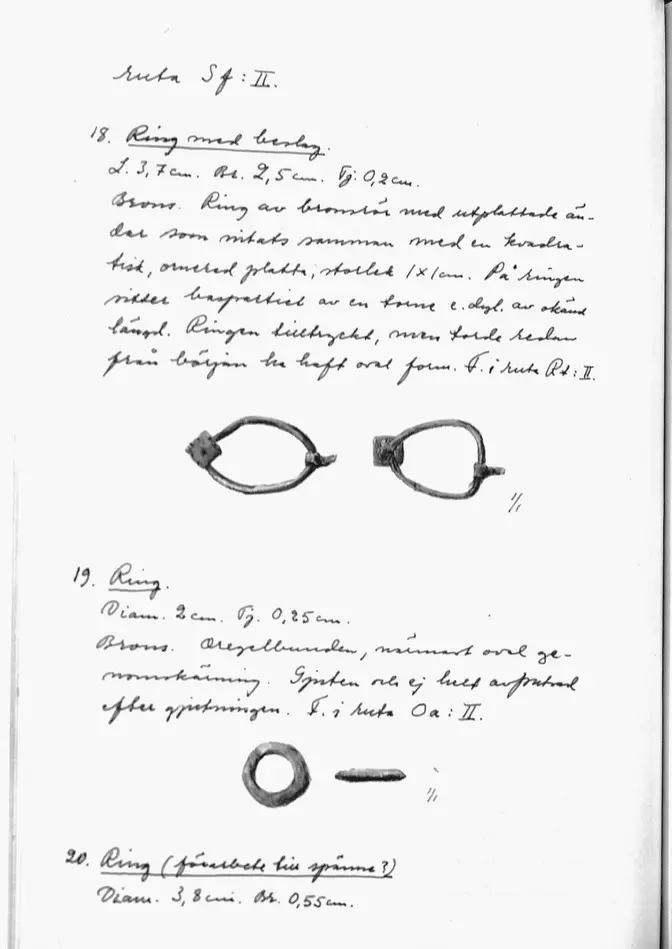 ruta Sf : II.
18. Ring med beslag.
L. 3,7 cm. Br. 2,5 cm. Tj. 0,2 cm.
Brons. Ring av bronstör med utplattade än-
dar som nitats samman med en kvadra-
tisk, ornerad platta, storlek 1 x 1 cm. På ringen
sitter baspartiet av en torne e. dyl. av okänd
längd. Ringen tilltryckt, men torde redan
från början ha haft oval form. F. i ruta Rt : II.
1/1
19. Ring.
Diam. 2 cm. Tj. 0,25 cm.
Brons. Oregelbunden, närmast oval ge-
nomskärning. Gjuten och ej helt avputsad
efter gjutningen. F. i ruta Oa : II.
1/1
20. Ring (förarbete till spänne?)
Diam. 3,8 cm. Br. 0,55 cm.